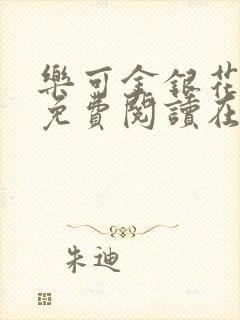 樂可金銀花
免費閱讀在
朱迪